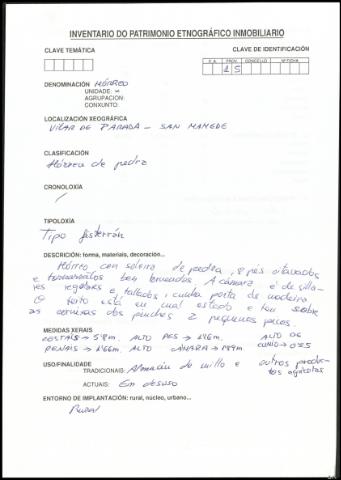 INVENTARIO DO PATRIMONIO ETNOGRÁFICO INMOBILIARIO
CLAVE TEMÁTICA
CLAVE DE IDENTIFICACIÓN
C.A. PROV. CONCELLO Nº FICHA
1 5
DENOMINACIÓN HÓRREO
UNIDADE: x
AGRUPACION:
CONXUNTO:
LOCALIZACIÓN XEOGRÁFICA
VILAR DE PARADA - SAN MAMEDE
CLASIFICACIÓN
Hórreo de pedra
CRONOLOXÍA
/
TIPOLOXÍA
Tipo fisterrán
DESCRICIÓN: forma, materiais, decoración...
Hórreo con soleira de pedra, 8 pés oitavados
e tornarratos ben torneados. A cámara é de silla-
res regulares e tallados, cunha porta de madeira
O teito está en mal estado e ten sobre
as cornixas dos pinches 2 pequenos
MEDIDAS XERAIS
COSTAIS → 5'8m. ALTO PES → 1'46m. ALTO DO
PENAIS → 1'66m. ALTO CÁMARA → 1'89m.
USO/FINALIDADE
TRADICIONAIS: Almacén do millo e outros produc-
tos agrícolas
ACTUAIS: En desuso
ENTORNO DE IMPLANTACIÓN: rural, núcleo, urbano...
Rural